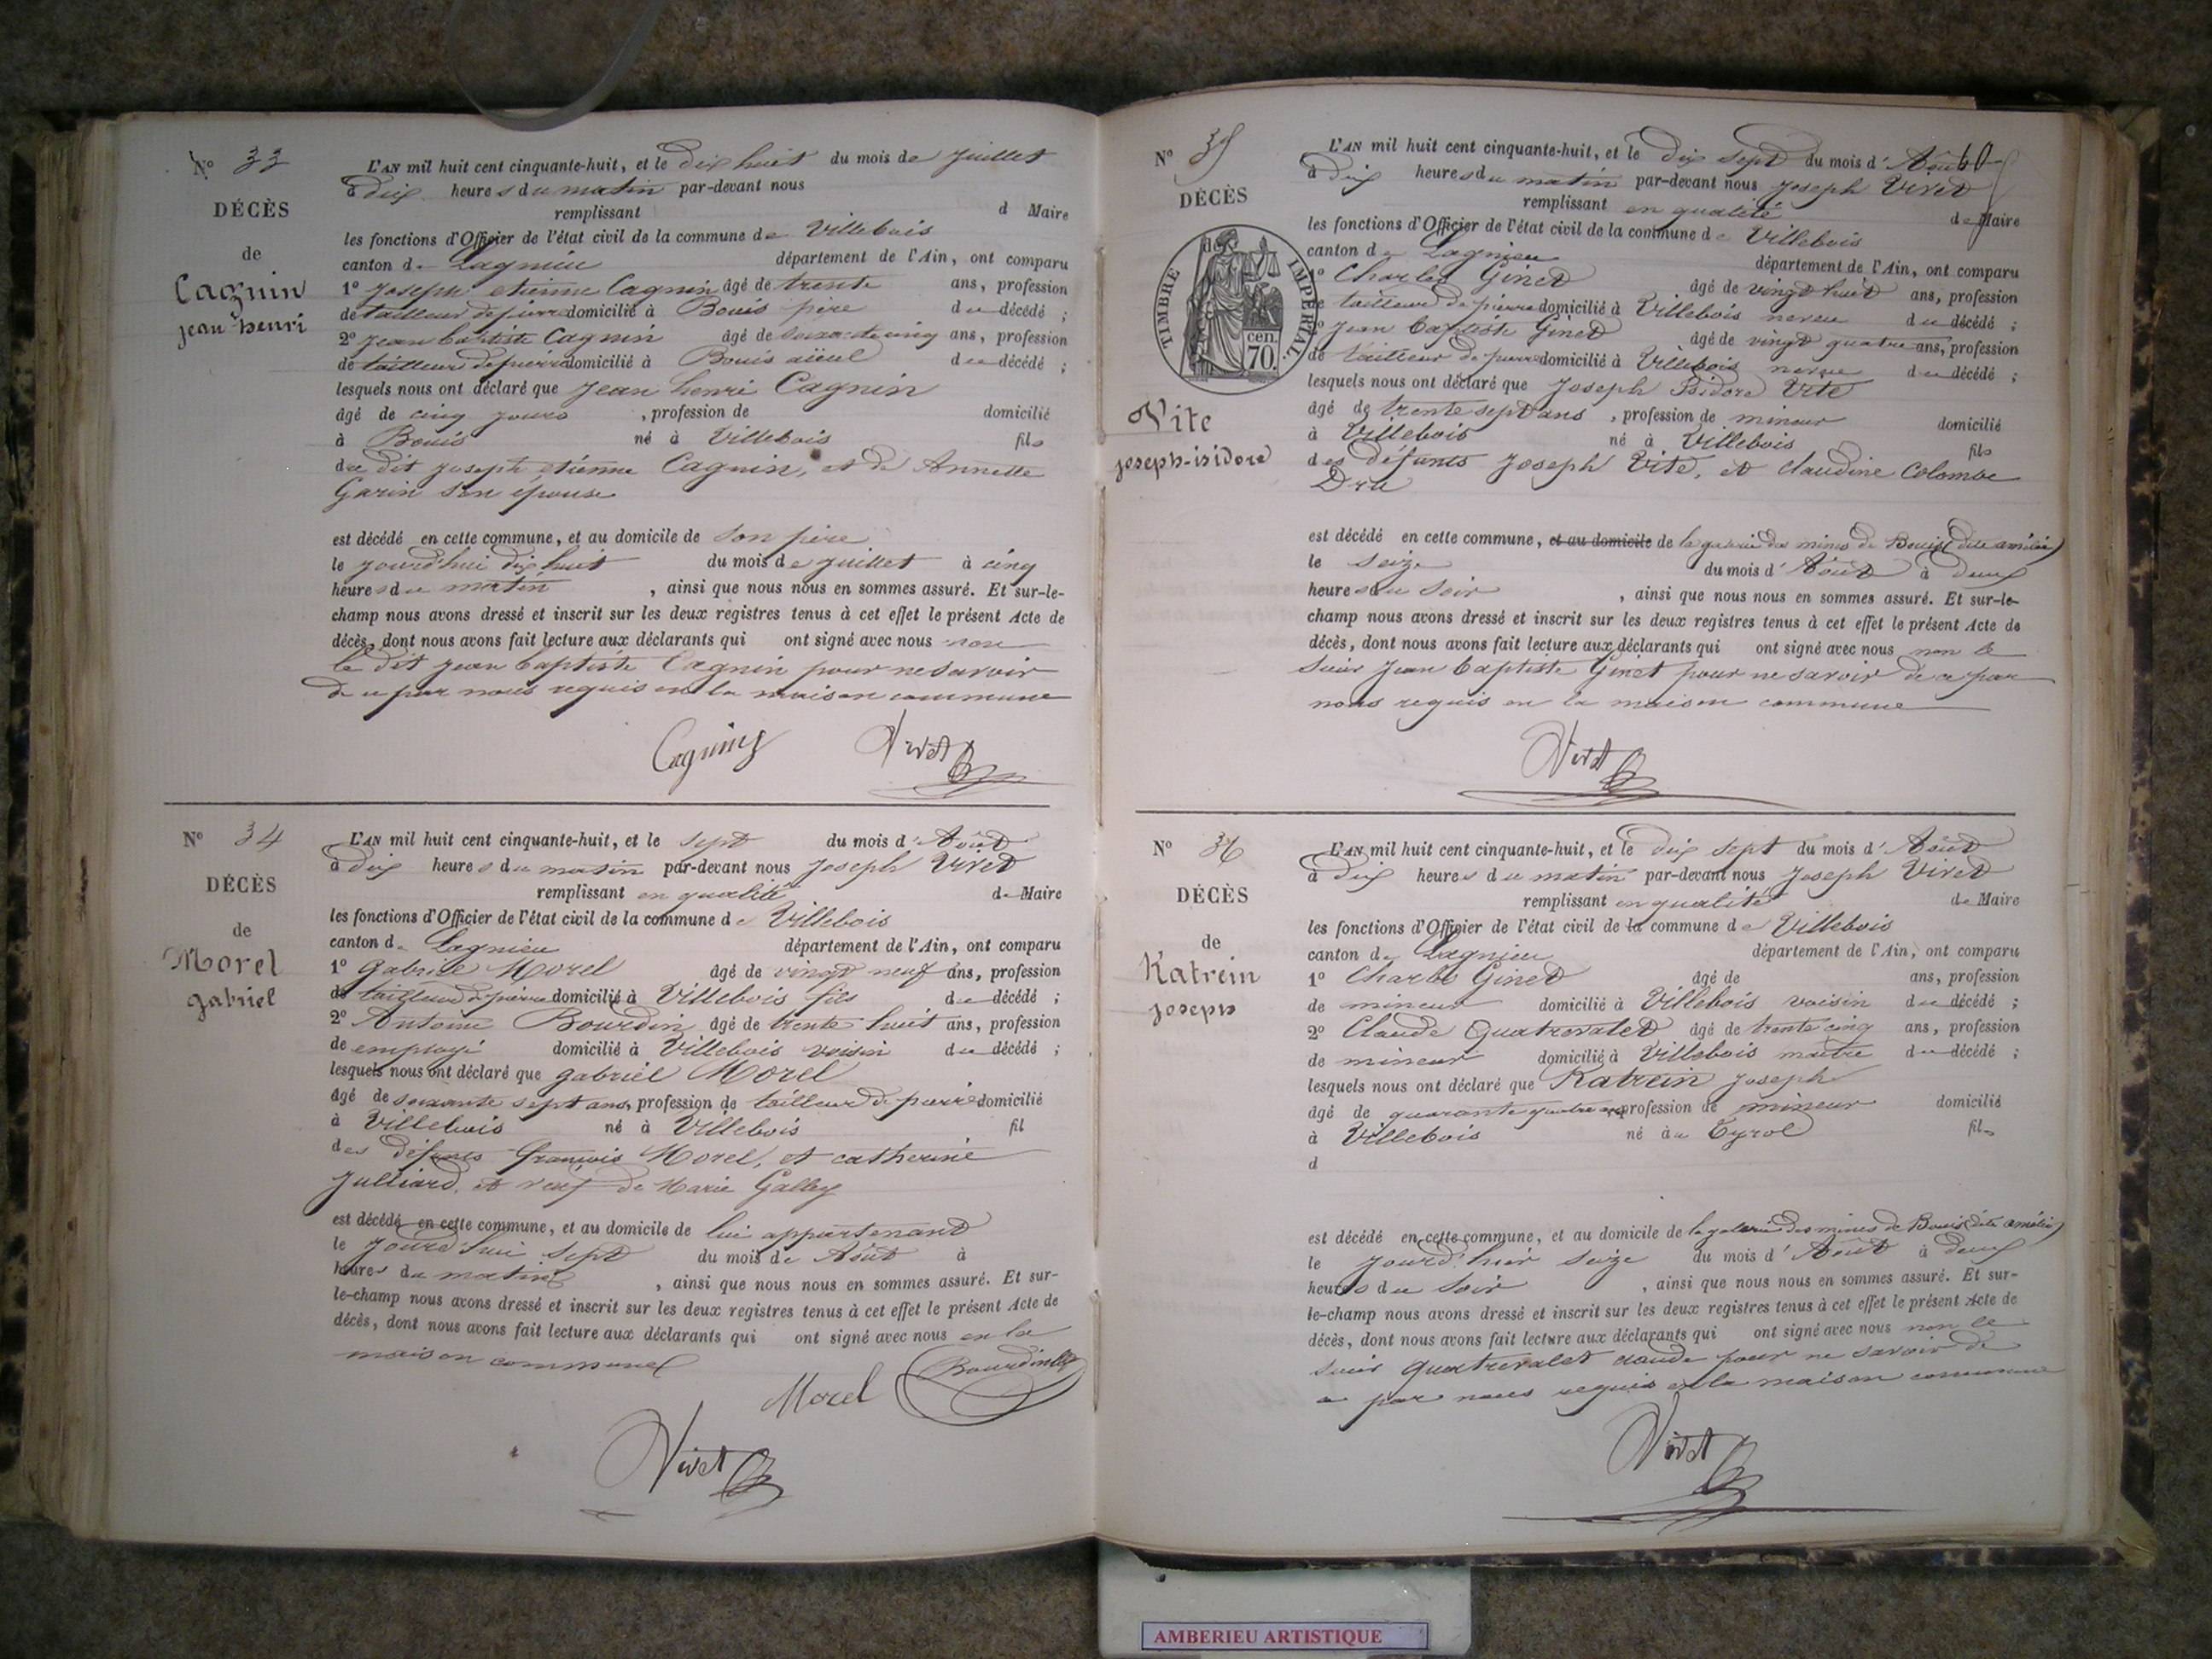 N° 33
DÉCÈS
de
Cagnin
jean henri
L'AN mil huit cent cinquante-huit, et le dix huit du mois de juillet
à dix heures du matin par-devant nous
remplissant d Maire
les fonctions d'Officier de l'état civil de la commune de Villebois
canton de Lagnieu département de l'Ain, ont comparu
1° joseph etienne Cagnin âgé de trente ans, profession
de tailleur de pierre domicilié à Bouis père du décédé ;
2° jean baptiste Cagnin âgé de soixante cinq ans, profession
de tailleur de pierre domicilié à Bouis aïeul du décédé ;
lesquels nous ont déclaré que jean henri Cagnin
âgé de cinq jours , profession de domicilié
à Bouis né à Villebois fils
du dit joseph etienne Cagnin, et de Annette
Garin son épouse
est décédé en cette commune, et au domicile de son père
le jourd'hui dix huit du mois de juillet à cinq
heures du matin , ainsi que nous nous en sommes assuré. Et sur-le-
champ nous avons dressé et inscrit sur les deux registres tenus à cet effet le présent Acte de
décès, dont nous avons fait lecture aux déclarants qui ont signé avec nous non
le dit jean baptiste Cagnin pour ne savoir
de ce par nous requis en la maison commune
Cagnin Vivet
N° 34
DÉCÈS
de
Morel
gabriel
L'AN mil huit cent cinquante-huit, et le sept du mois d'Août
à dix heures du matin par-devant nous joseph Vivet
remplissant en qualité de Maire
les fonctions d'Officier de l'état civil de la commune de Villebois
canton de Lagnieu département de l'Ain, ont comparu
1° gabriel Morel âgé de vingt neuf ans, profession
de tailleur de pierre domicilié à Villebois fils du décédé ;
2° Antoine Bourdin âgé de trente huit ans, profession
de employé domicilié à Villebois voisin du décédé ;
lesquels nous ont déclaré que gabriel Morel
âgé de soixante sept ans, profession de tailleur de pierre domicilié
à Villebois né à Villebois fil
des défunts françois Morel, et catherine
Julliard, et veuf de Marie Galley
est décédé en cette commune, et au domicile de lui appartenant
le jourd'hui sept du mois de Août à
heures du matin , ainsi que nous nous en sommes assuré. Et sur-
le-champ nous avons dressé et inscrit sur les deux registres tenus à cet effet le présent Acte de
décès, dont nous avons fait lecture aux déclarants qui ont signé avec nous en la
maison commune
Morel Bourdin
Vivet
N° 35
DÉCÈS
de
TIMBRE IMPÉRIAL.
cen.
70.
Vite
joseph-isidore
L'AN mil huit cent cinquante-huit, et le dix sept du mois d'Août
à dix heures du matin par-devant nous joseph Vivet
remplissant en qualité de Maire
les fonctions d'Officier de l'état civil de la commune de Villebois
canton de Lagnieu département de l'Ain, ont comparu
1° Charles Ginet âgé de vingt huit ans, profession
de tailleur de pierre domicilié à Villebois neveu du décédé ;
2° jean baptiste Ginet âgé de vingt quatre ans, profession
de tailleur de pierre domicilié à Villebois neveu du décédé ;
lesquels nous ont déclaré que joseph Isidore Vite
âgé de trente sept ans , profession de mineur domicilié
à Villebois né à Villebois fils
des défunts joseph Vite, et claudine Colombe
Dru
est décédé en cette commune, et au domicile de la galerie des mines de Bouis (dite amélie)
le seize du mois d'Août à deux
heures du soir , ainsi que nous nous en sommes assuré. Et sur-le-
champ nous avons dressé et inscrit sur les deux registres tenus à cet effet le présent Acte de
décès, dont nous avons fait lecture aux déclarants qui ont signé avec nous non le
sieur jean baptiste Ginet pour ne savoir de ce par
nous requis en la maison commune
Vivet
N° 36
DÉCÈS
de
Katrein
joseph
L'AN mil huit cent cinquante-huit, et le dix sept du mois d'Août
à dix heures du matin par-devant nous joseph Vivet
remplissant en qualité de Maire
les fonctions d'Officier de l'état civil de la commune de Villebois
canton de Lagnieu département de l'Ain, ont comparu
1° Charles Ginet âgé de ans, profession
de mineur domicilié à Villebois voisin du décédé ;
2° Claude Quatrevalet âgé de trente cinq ans, profession
de mineur domicilié à Villebois maître du décédé ;
lesquels nous ont déclaré que Katrein joseph
âgé de quarante quatre ans profession de mineur domicilié
à Villebois né au Tyrol fils
d
est décédé en cette commune, et au domicile de la galerie des mines de Bouis (dite amélie)
le jourd'hier seize du mois d'Août à deux
heures du soir , ainsi que nous nous en sommes assuré. Et sur-
le-champ nous avons dressé et inscrit sur les deux registres tenus à cet effet le présent Acte de
décès, dont nous avons fait lecture aux déclarants qui ont signé avec nous non le
sieur Quatrevalet claude pour ne savoir de
ce par nous requis en la maison commune
Vivet
AMBERIEU ARTISTIQUE